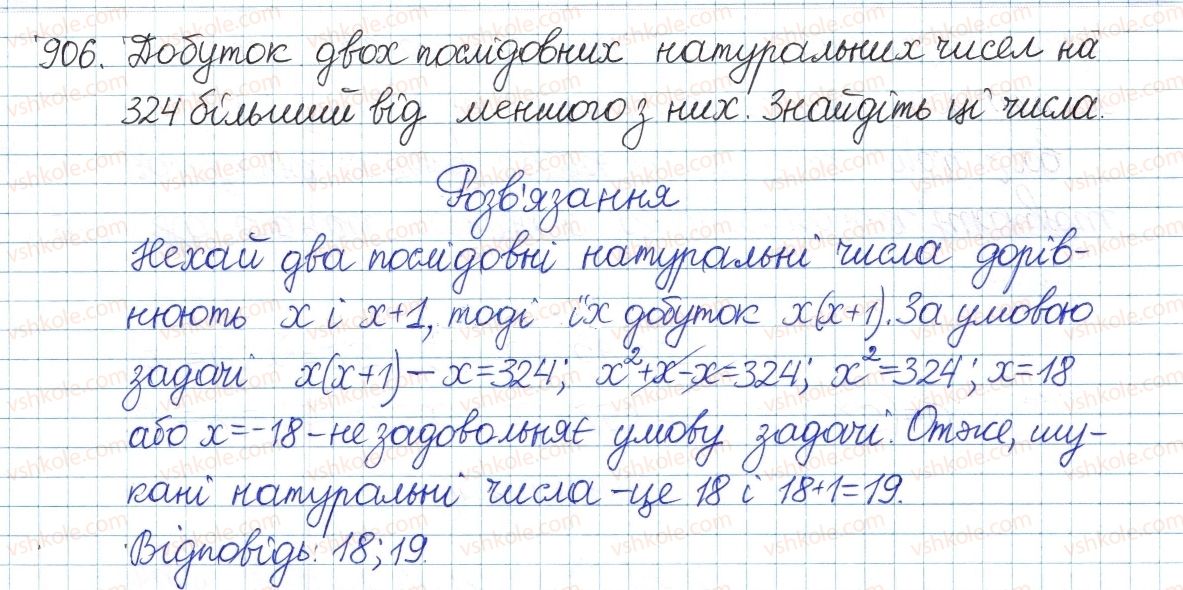 906. Добуток двох послідовних натуральних чисел на
324 більший від меншого з них. Знайдіть ці числа.
Розв'язання
Нехай два послідовні натуральні числа дорів-
нюють x і x+1, тоді їх добуток x(x+1). За умовою
задачі x(x+1)-x=324; x²+x-x=324; x²=324; x=18
або x=-18-не задовольняє умову задачі. Отже, шу-
кані натуральні числа -це 18 і 18+1=19.
Відповідь: 18; 19.